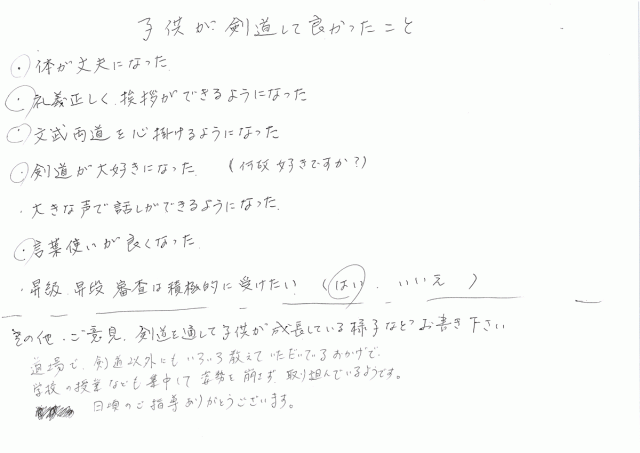 子供が剣道して良かったこと
・体が丈夫になった
・礼義正しく、挨拶ができるようになった
・文武両道を心掛けるようになった
・剣道が大好きになった (何故好きですか?)
・大きな声で話しができるようになった
・言葉使いが良くなった
・昇級、昇段審査は積極的に受けたい (はい . いいえ )
その他・ご意見、剣道を通して子供が成長している様子などお書き下さい
道場で、剣道以外にもいろいろ教えていただいているおかげで、
学校の授業なども集中して姿勢を崩さず取り組んでいるようです。
日頃のご指導ありがとうございます。